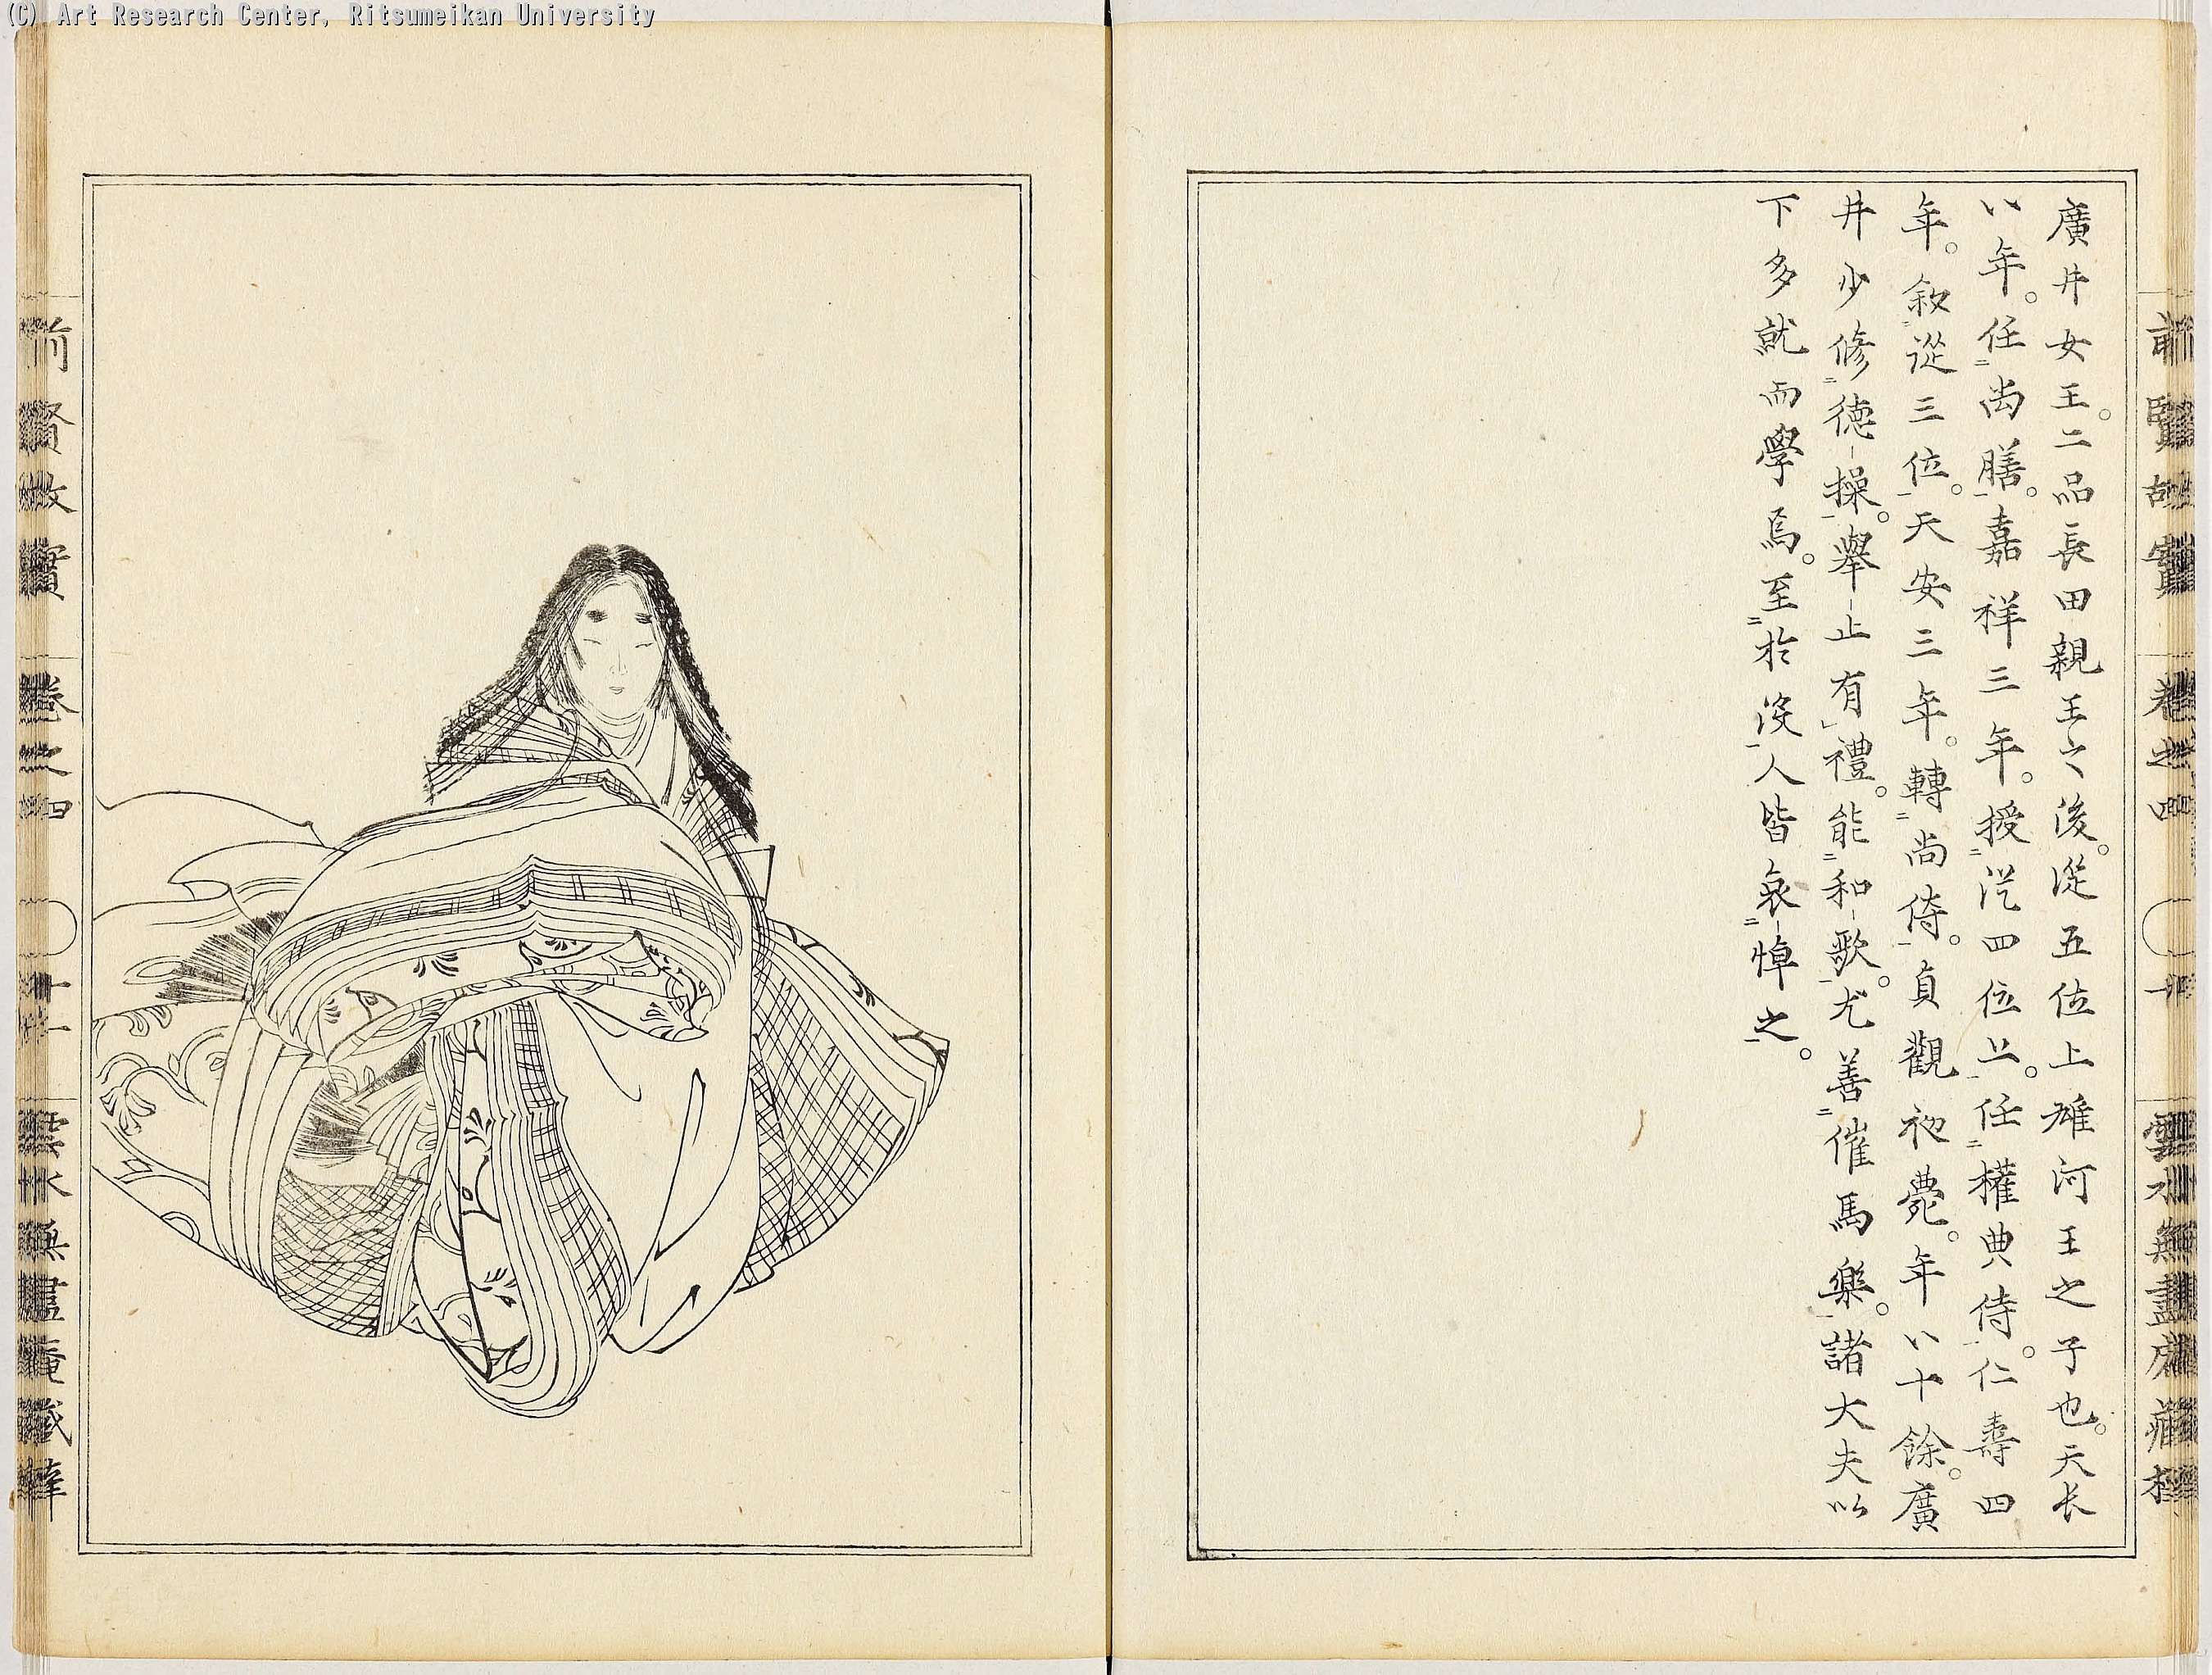 (C) Art Research Center, Ritsumeikan University
前賢故實 卷之四 十 雲水無盡庵藏
廣井女王。二品長田親王之後。從五位上雄河王之子也。天长
八年。任尚膳。嘉祥三年。授従四位上。任權典侍。仁壽四
年。敘從三位。天安三年。轉尚侍。貞觀初薨。年八十餘。廣
井少修德操。舉止有禮。能和歌。尤善催馬樂。諸大夫以
下多就而學焉。至於沒人皆哀悼之。
前賢故實 卷之四 十一 雲水無盡庵藏